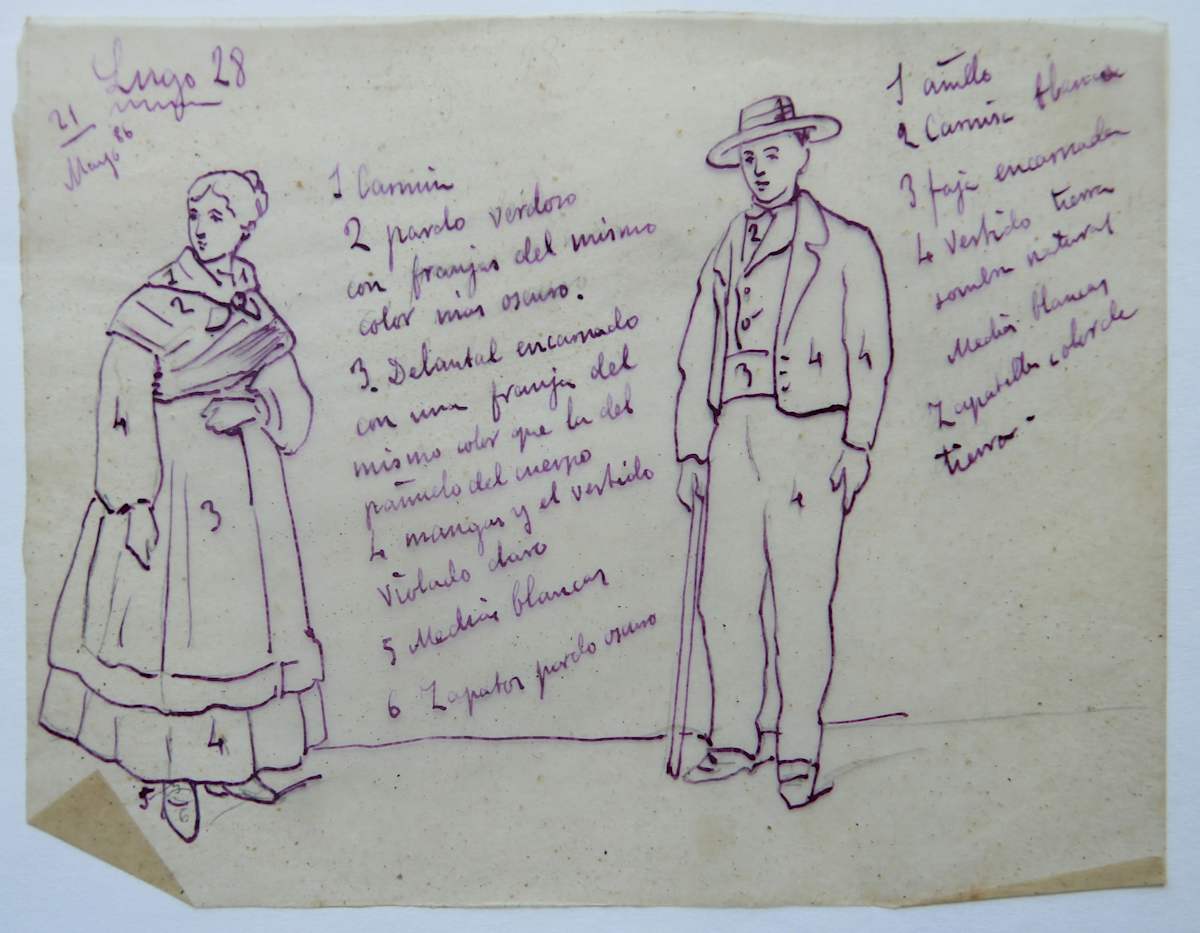 Lugo 28
21
Mayo 86
1 Carmin
2 pardo verdoso
con franjas del mismo
color mas oscuro.
3. Delantal encarnado
con una franja del
mismo color que la del
pañuelo del cuerpo
4 mangas y el vestido
violado claro
5 Medias blancas
6 Zapatos pardo oscuro
1 anillo
2 Camisa blanca
3 faja encarnada
4 Vestido tierra
sombra natural
Medias blancas
Zapatillas color de
tierra.
1
1
2
4
3
4
5
6
2
3
4
4
4